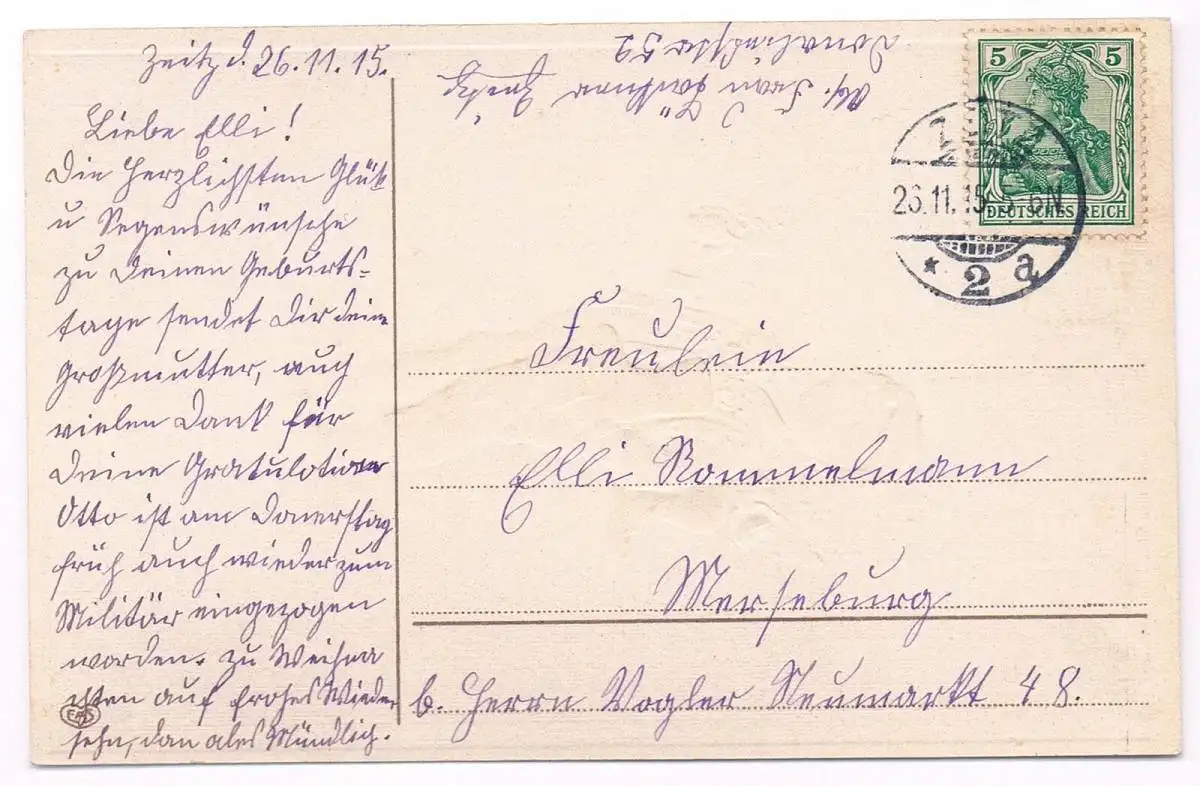 Zeitz d. 26.11.15.
Liebe Elli!
Die Herzlichsten Glück
u Segenswünsche
zu Deinen Geburts-
tage sendet Dir deine
Großmutter, auch
vielen Dank für
Deine Gratulation
Otto ist am Donerstag
früh auch wieder zum
Militär eingezogen
worden. zu Weihna
chten auf frohes Wieder
sehn, dan ales Mündlich.
Abs. Frau
Zeitz
5 5
DEUTSCHES REICH
26.11.15. 5-6N
* 2 a
Freulein
Elli Rommelmann
Merseburg
b. Herrn Vogler Neumarkt 48.
EAS